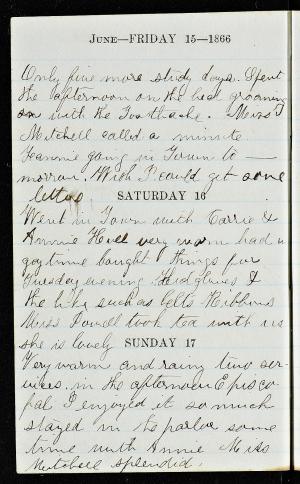 June—FRIDAY 15—1866
Only five more study days. Spent
the afternoon on the bed groaning
on with the Toothache. Miss
Mitchell called a minute
Jeannie going in Town to —
morrow. Wish I could get some
letters
SATURDAY 16
Went in Town with Carrie &
Annie Hull very warm had a
gay time bought things for
Tuesday evening. Kid gloves &
the like such as belts Ribbons
Miss Powell took tea with us
she is lovely
SUNDAY 17
Very warm and rainy two ser-
vices. in the afternoon Episco-
pal I enjoyed it so much
stayed in the parlor some
time with Annie Miss
Mitchell splendid.